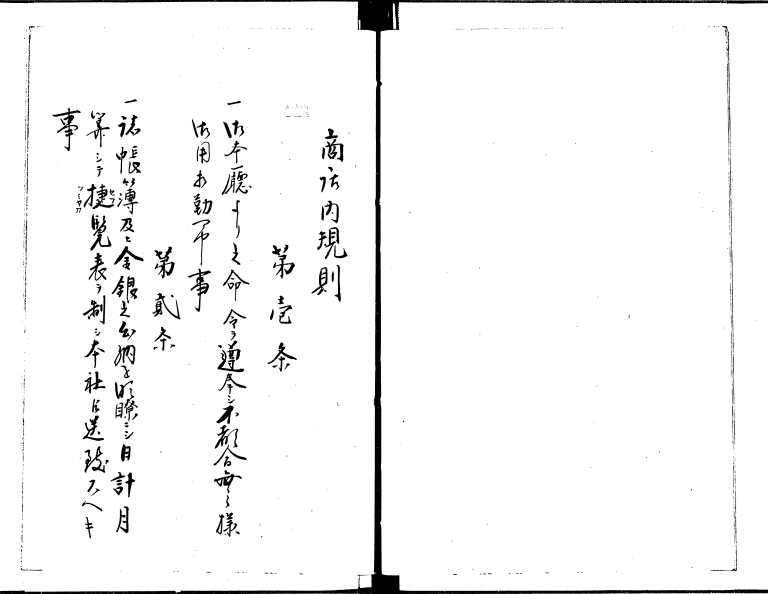 商店内規則
第壱条
一御本廳ヨリ之命令ヲ遵奉シ不都合無之様
御用相勤可申事
第貳条
一諸帳簿及ヒ金銀之出納ヲ明瞭ニシ日計月
算シテ捷覧表ヲ制シ本社ニ送致スヘキ
事